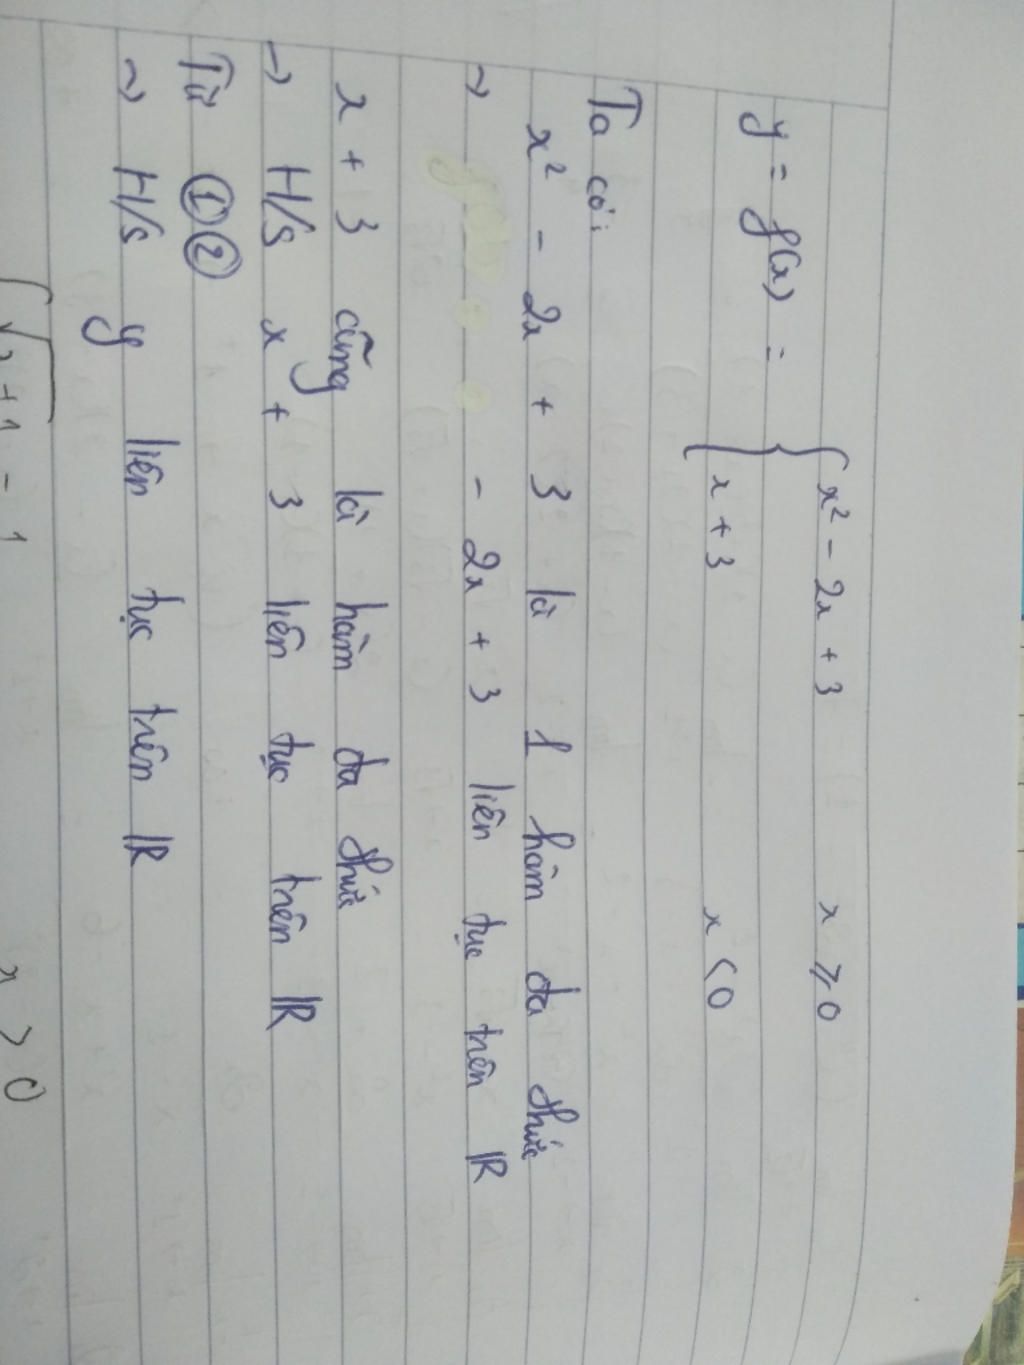 y = f(x) = { x² - 2x + 3 x ⩾ 0
{ x + 3 x < 0
Ta có:
x² - 2x + 3 là 1 hàm đa thức
→ - 2x + 3 liên tục trên ℝ
x + 3 cũng là hàm đa thức
→ H/s x + 3 liên tục trên ℝ
Từ ① ②
→ H/s y liên tục trên ℝ
√x + 1 - 1 x > 0